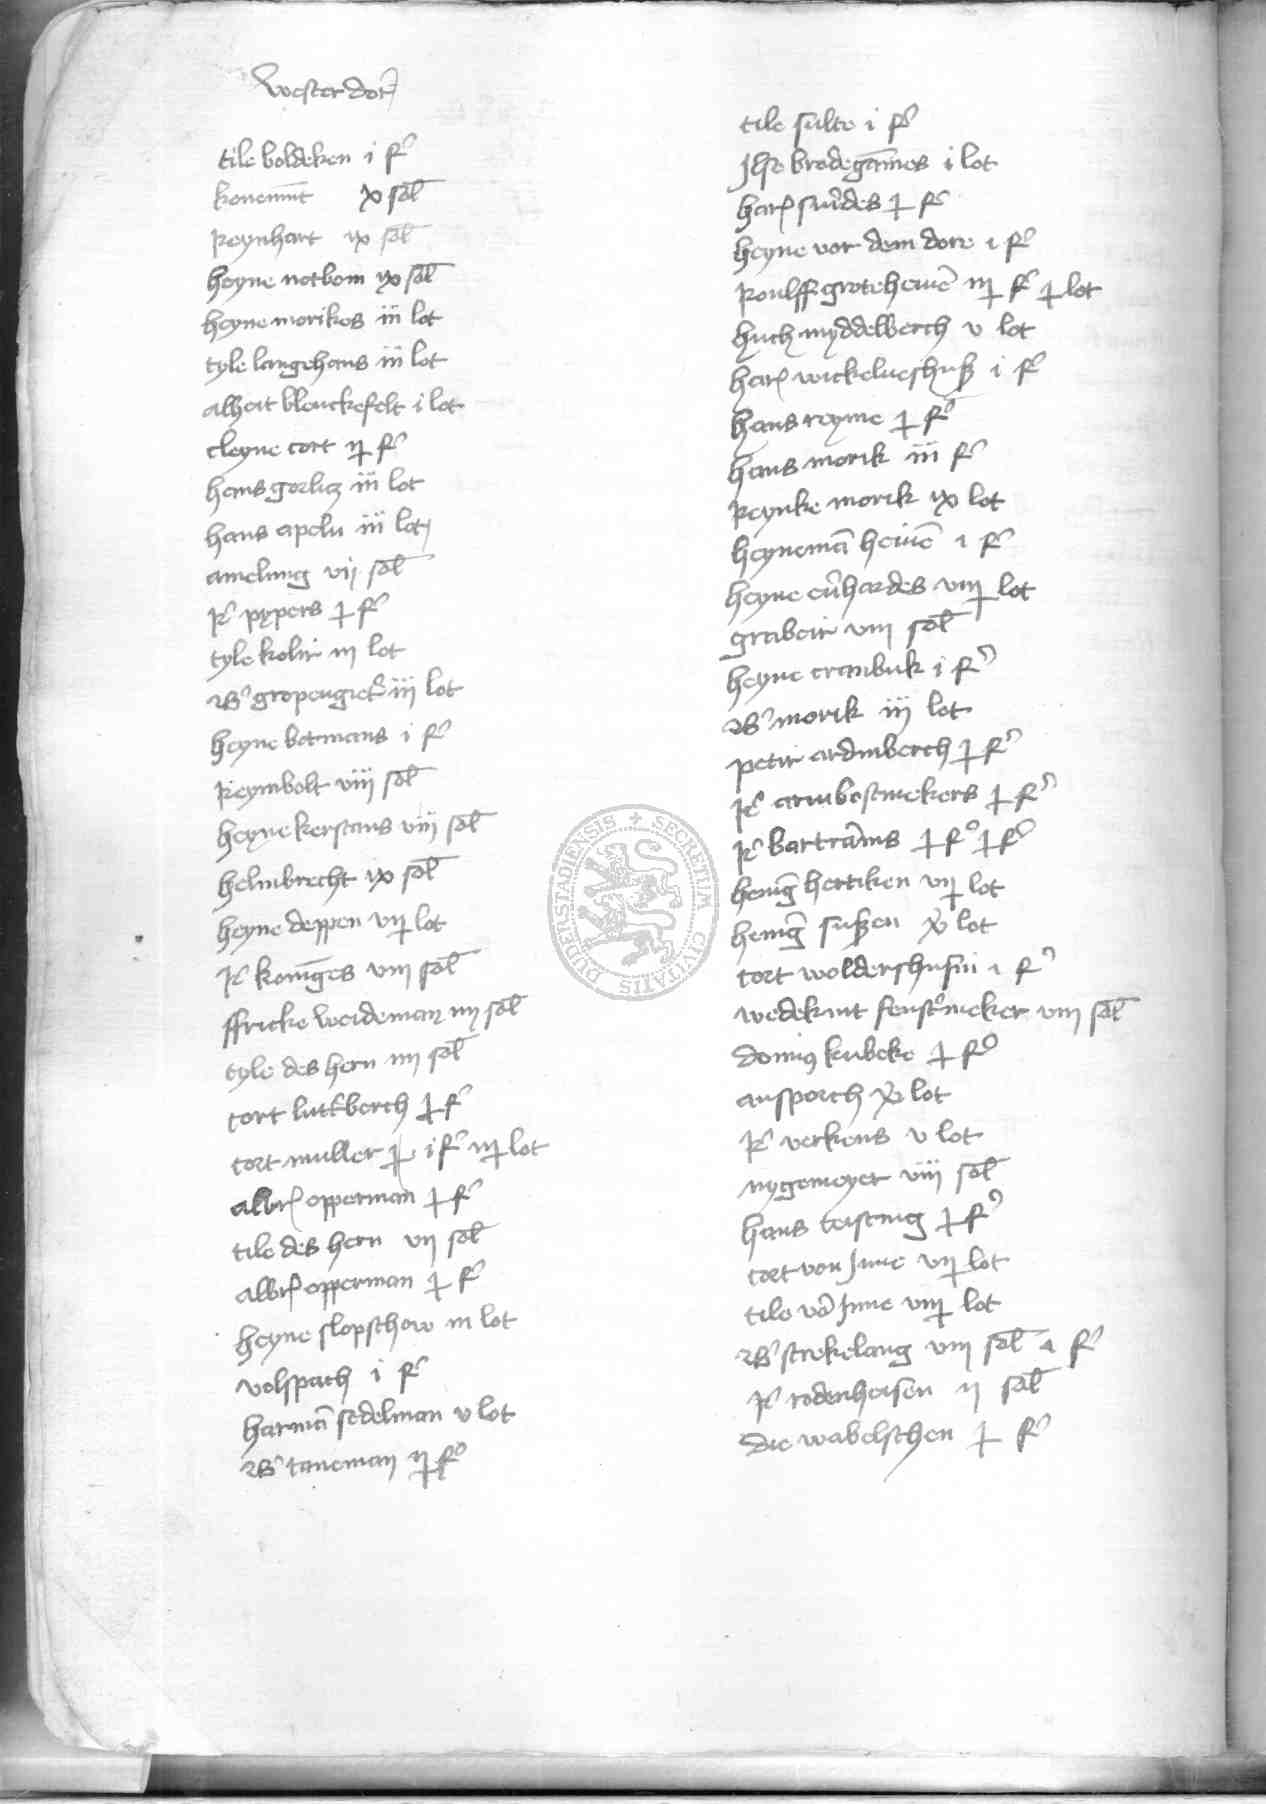 Wester dor
tile boldeken i f
konemunt ix sol
Reynhart ix sol
heyne notbom ix sol
heyne morikes iii lot
tyle langehans iii lot
alheit blenckefelt i lot
cleyne cort ii f
hans gorlicz iii lot
hans apeln iii lot
amelung vii sol
R pypers f
tyle kolir iii lot
gropengiet iii lot
heyne botmans i f
Reymbolt viii sol
heyne kerstans viii sol
helmbrecht ix sol
heyne deppen vii lot
R koniges viii sol
ffricke weideman iiii sol
tyle des hern iiii sol
cort lutkberch f
cort muller i f iii lot
albr opperman f
tile des hern vii sol
albr opperman f
heyne slopschow iii lot
volspach i f
harman sedelman v lot
taneman ii f
tile sulte i f
Ilse brodegames i lot
har surdes f
heyne vor dem dore i f
Roulff grotehenne iii f lot
huch myddelberch v lot
har wickelveshusz i f
hans reyme f
hans morik iii f
Reynke morik ix lot
heyneman heine i f
heyne everhardes viii lot
graboir viii sol
heyne crambuk i f
morik iii lot
petir ardinberch f
R armbostmekers f
R bartrams f f
hening hertiken vii lot
hening suszen x lot
cort woldershusin i f
wedekint fenstermeker viii sol
donius kubeke f
ansporch x lot
R verkens v lot
nygemeyer viii sol
hans teistung f
cort von Jnne vii lot
tile von Jnne viii lot
strekelang viii sol i f
R rodenheisen ii sol
die wabelschen f
DUDERSTADIENSIS SECRETUM CIVITATIS